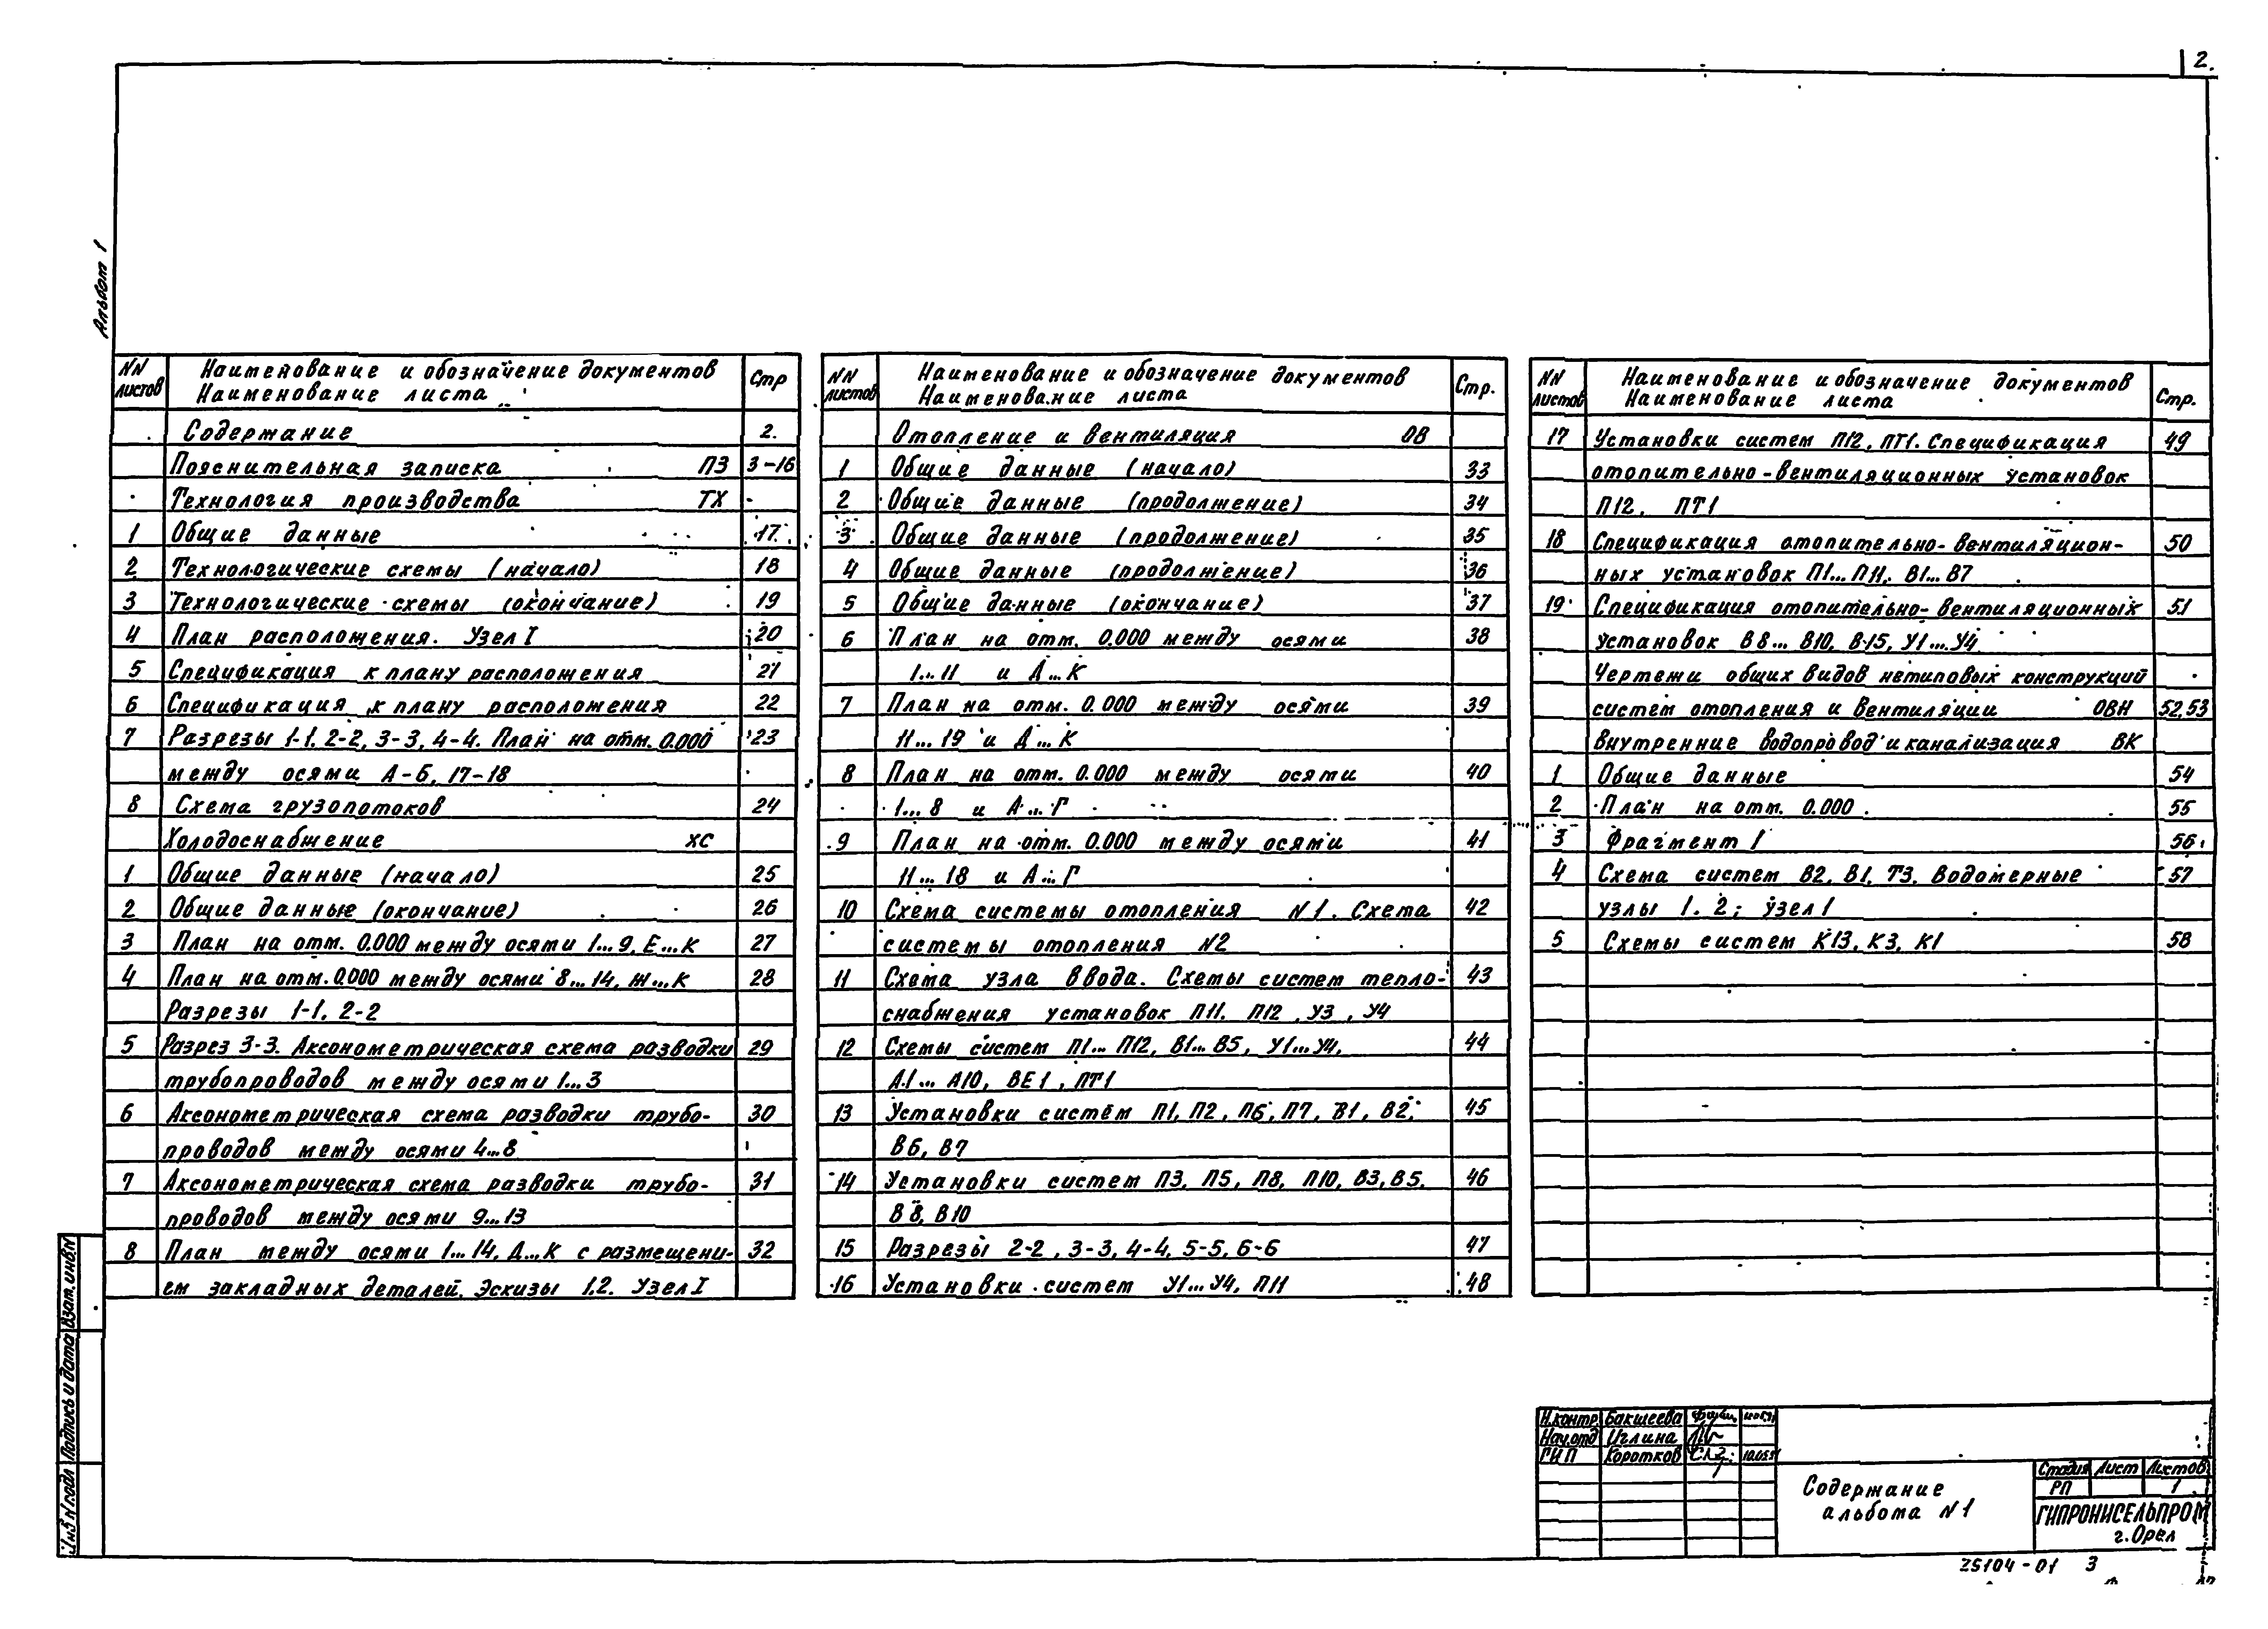 2.
Альбом 1
NN листов
Наименование и обозначение документов
Наименование листа
Стр
Содержание 2.
Пояснительная записка ПЗ 3-16
Технология производства ТХ
1 Общие данные 17
2 Технологические схемы (начало) 18
3 Технологические схемы (окончание) 19
4 План расположения. Узел I 20
5 Спецификация к плану расположения 21
6 Спецификация к плану расположения 22
7 Разрезы 1-1, 2-2, 3-3, 4-4. План на отм. 0.000 23
между осями А-Б, 17-18
8 Схема грузопотоков 24
Холодоснабжение ХС
1 Общие данные (начало) 25
2 Общие данные (окончание) 26
3 План на отм. 0.000 между осями 1...9, Е...К 27
4 План на отм. 0.000 между осями 8...14, Ж...К 28
Разрезы 1-1, 2-2
5 Разрез 3-3. Аксонометрическая схема разводки 29
трубопроводов между осями 1...3
6 Аксонометрическая схема разводки трубо- 30
проводов между осями 4...8
7 Аксонометрическая схема разводки трубо- 31
проводов между осями 9...13
8 План между осями 1...14, Д...К с размещени- 32
ем закладных деталей. Эскизы 1,2. Узел I
NN листов
Наименование и обозначение документов
Наименование листа
Стр.
Отопление и вентиляция ОВ
1 Общие данные (начало) 33
2 Общие данные (продолжение) 34
3 Общие данные (продолжение) 35
4 Общие данные (продолжение) 36
5 Общие данные (окончание) 37
6 План на отм. 0.000 между осями 38
1...11 и Д...К
7 План на отм. 0.000 между осями 39
11...19 и Д...К
8 План на отм. 0.000 между осями 40
1...8 и А...Г
9 План на отм. 0.000 между осями 41
11...18 и А...Г
10 Схема системы отопления N1. Схема 42
системы отопления N2
11 Схема узла ввода. Схемы систем тепло- 43
снабжения установок П11, П12, У3, У4
12 Схемы систем П1...П12, В1...В5, У1...У4, 44
А1...А10, ВЕ1, ПТ1
13 Установки систем П1, П2, П6, П7, В1, В2, 45
В6, В7
14 Установки систем П3, П5, П8, П10, В3, В5, 46
В8, В10
15 Разрезы 2-2, 3-3, 4-4, 5-5, 6-6 47
16 Установки систем У1...У4, П11 48
NN листов
Наименование и обозначение документов
Наименование листа
Стр.
17 Установки систем П12, ПТ1. Спецификация 49
отопительно-вентиляционных установок
П12, ПТ1
18 Спецификация отопительно-вентиляцион- 50
ных установок П1...П11, В1...В7
19 Спецификация отопительно-вентиляционных 51
установок В8...В10, В15, У1...У4
Чертежи общих видов нетиповых конструкций
систем отопления и вентиляции ОВН 52,53
Внутренние водопровод и канализация ВК
1 Общие данные 54
2 План на отм. 0.000 55
3 Фрагмент 1 56
4 Схема систем В2, В1, Т3. Водомерные 57
узлы 1, 2; узел 1
5 Схемы систем К13, К3, К1 58
Взам. инв. N
Подпись и дата
Инв N подл
Н.контр. Бакшеева
Нач.отд Иглина
ГИП Коротков
Содержание
альбома N1
Стадия Лист Листов
РП 1
ГИПРОНИСЕЛЬПРОМ
г.Орел
25104-01 3